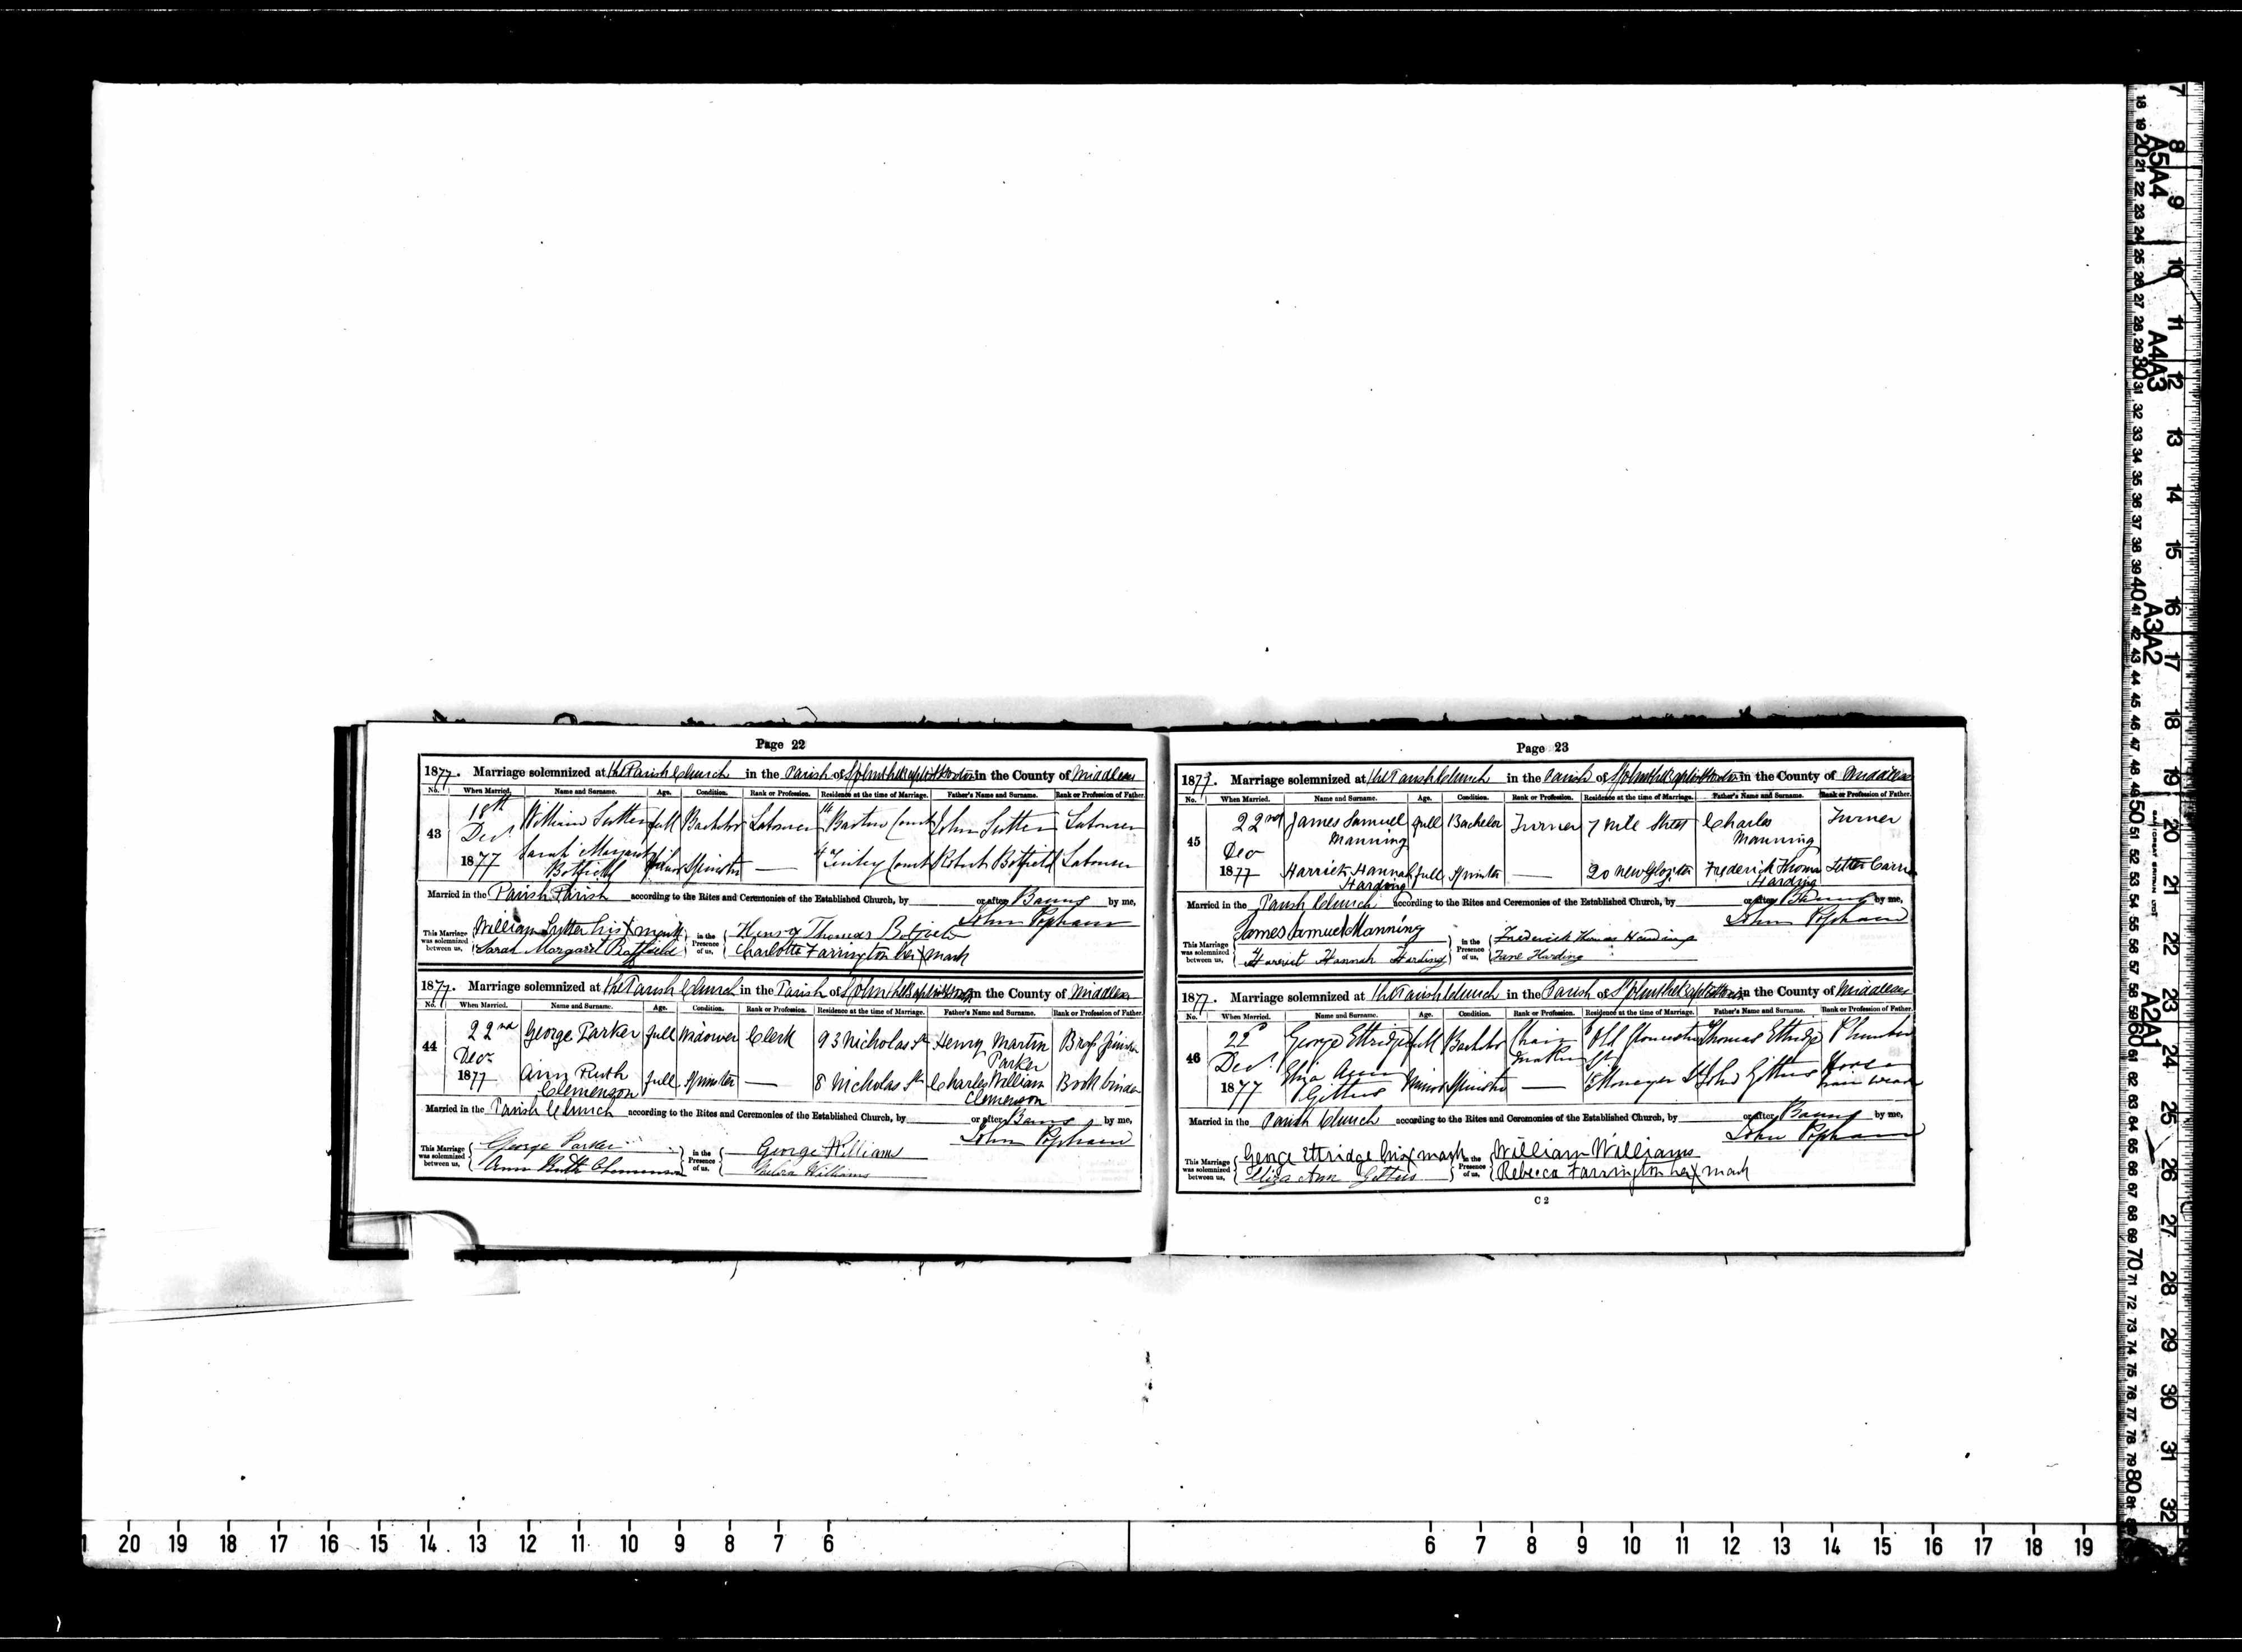 Page 22
1877. Marriage solemnized at the Parish Church in the Parish of St John the Baptist Hoxton in the County of Middlesex
No. When Married. Name and Surname. Age. Condition. Rank or Profession. Residence at the time of Marriage. Father's Name and Surname. Rank or Profession of Father.
43 18th Decr 1877
William Sutter full Bachelor Labourer 14 Court John Sutter Labourer
Sarah Margaret Botfield Minor Spinster — 4 Court Robert Botfield Labourer
Married in the Parish Parish according to the Rites and Ceremonies of the Established Church, by or after Banns by me,
John Popham
This Marriage was solemnized between us, William Sutter his X mark in the Presence of us, Henry Thomas Botfield
Sarah Margaret Charlotte Farrington her X mark
1877. Marriage solemnized at the Parish Church in the Parish of St John the Baptist Hoxton in the County of Middlesex
No. When Married. Name and Surname. Age. Condition. Rank or Profession. Residence at the time of Marriage. Father's Name and Surname. Rank or Profession of Father.
44 22nd Decr 1877
George Parker full Widower Clerk 93 Nicholas St Henry Martin Parker Brass finisher
Ann Ruth Clemenson full Spinster — 8 Nicholas St Charles William Clemenson Book binder
Married in the Parish Church according to the Rites and Ceremonies of the Established Church, by or after Banns by me,
John Popham
This Marriage was solemnized between us, George Parker in the Presence of us. George Williams
Ann Ruth Clemenson Williams
Page 23
1877. Marriage solemnized at the Parish Church in the Parish of St John the Baptist Hoxton in the County of Middlesex
No. When Married. Name and Surname. Age. Condition. Rank or Profession. Residence at the time of Marriage. Father's Name and Surname. Rank or Profession of Father.
45 22nd Decr 1877
James Samuel Manning full Bachelor Turner 7 Nile Street Charles Manning Turner
Harriet Hannah Harding full Spinster — 20 New Frederick Thomas Harding Letter Carrier
Married in the Parish Church according to the Rites and Ceremonies of the Established Church, by or after Banns by me,
John Popham
This Marriage was solemnized between us, James Samuel Manning in the Presence of us, Frederick Thomas Harding
Harriet Hannah Harding Jane Harding
1877. Marriage solemnized at the Parish Church in the Parish of St John the Baptist Hoxton in the County of Middlesex
No. When Married. Name and Surname. Age. Condition. Rank or Profession. Residence at the time of Marriage. Father's Name and Surname. Rank or Profession of Father.
46 22d Decr 1877
George Ettridge full Bachelor Chair Maker Old Gloucester St Thomas Ettridge Plumber
Eliza Ann Gittus Minor Spinster — John Gittus Horse hair weaver
Married in the Parish Church according to the Rites and Ceremonies of the Established Church, by or after Banns by me,
John Popham
This Marriage was solemnized between us, George Ettridge his X mark in the Presence of us, William Williams
Eliza Ann Gittus Rebecca Farrington her X mark
C 2
20 19 18 17 16 15 14 13 12 11 10 9 8 7 6 6 7 8 9 10 11 12 13 14 15 16 17 18 19
A5A4
A4A3
A3A2
A2A1